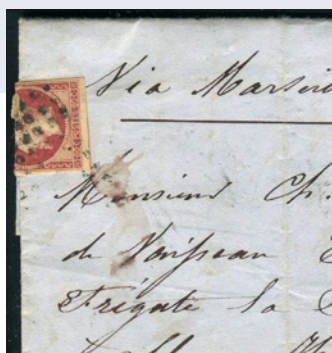 Via Marseil
Monsieur Ch.
de Vaisseau
Frégate la